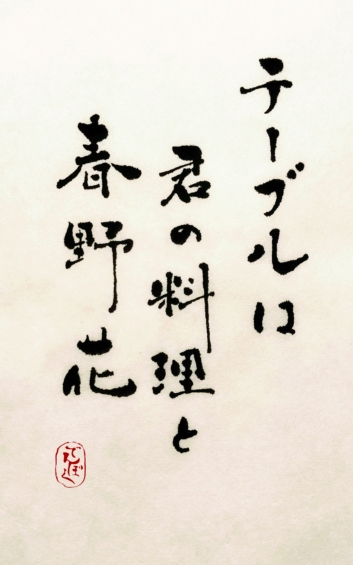 テーブルは
君の料理と
春野花